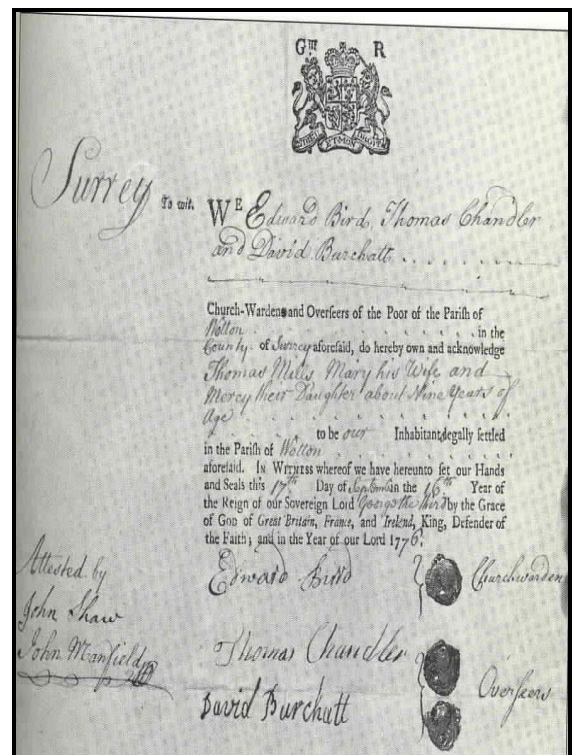 G III R
DIEU ET MON DROIT
Surrey To wit.
WE Edward Bird, Thomas Chandler
and David Burchatt
Church-Wardens and Overseers of the Poor of the Parish of
Wotton in the
County of Surrey aforesaid, do hereby own and acknowledge
Thomas Mills Mary his Wife and
Mercy their Daughter about Nine Years of
Age
to be our Inhabitants legally settled
in the Parish of Wotton
aforesaid. IN WITNESS whereof we have hereunto set our Hands
and Seals this 17th Day of September in the 16th Year of
the Reign of our Sovereign Lord George the third by the Grace
of GOD of Great Britain, France, and Ireland, King, Defender of
the Faith; and in the Year of our Lord 1776.
Attested by
John Shaw
John Manfield
Edward Bird
Churchwarden
Thomas Chandler
David Burchatt
Overseers